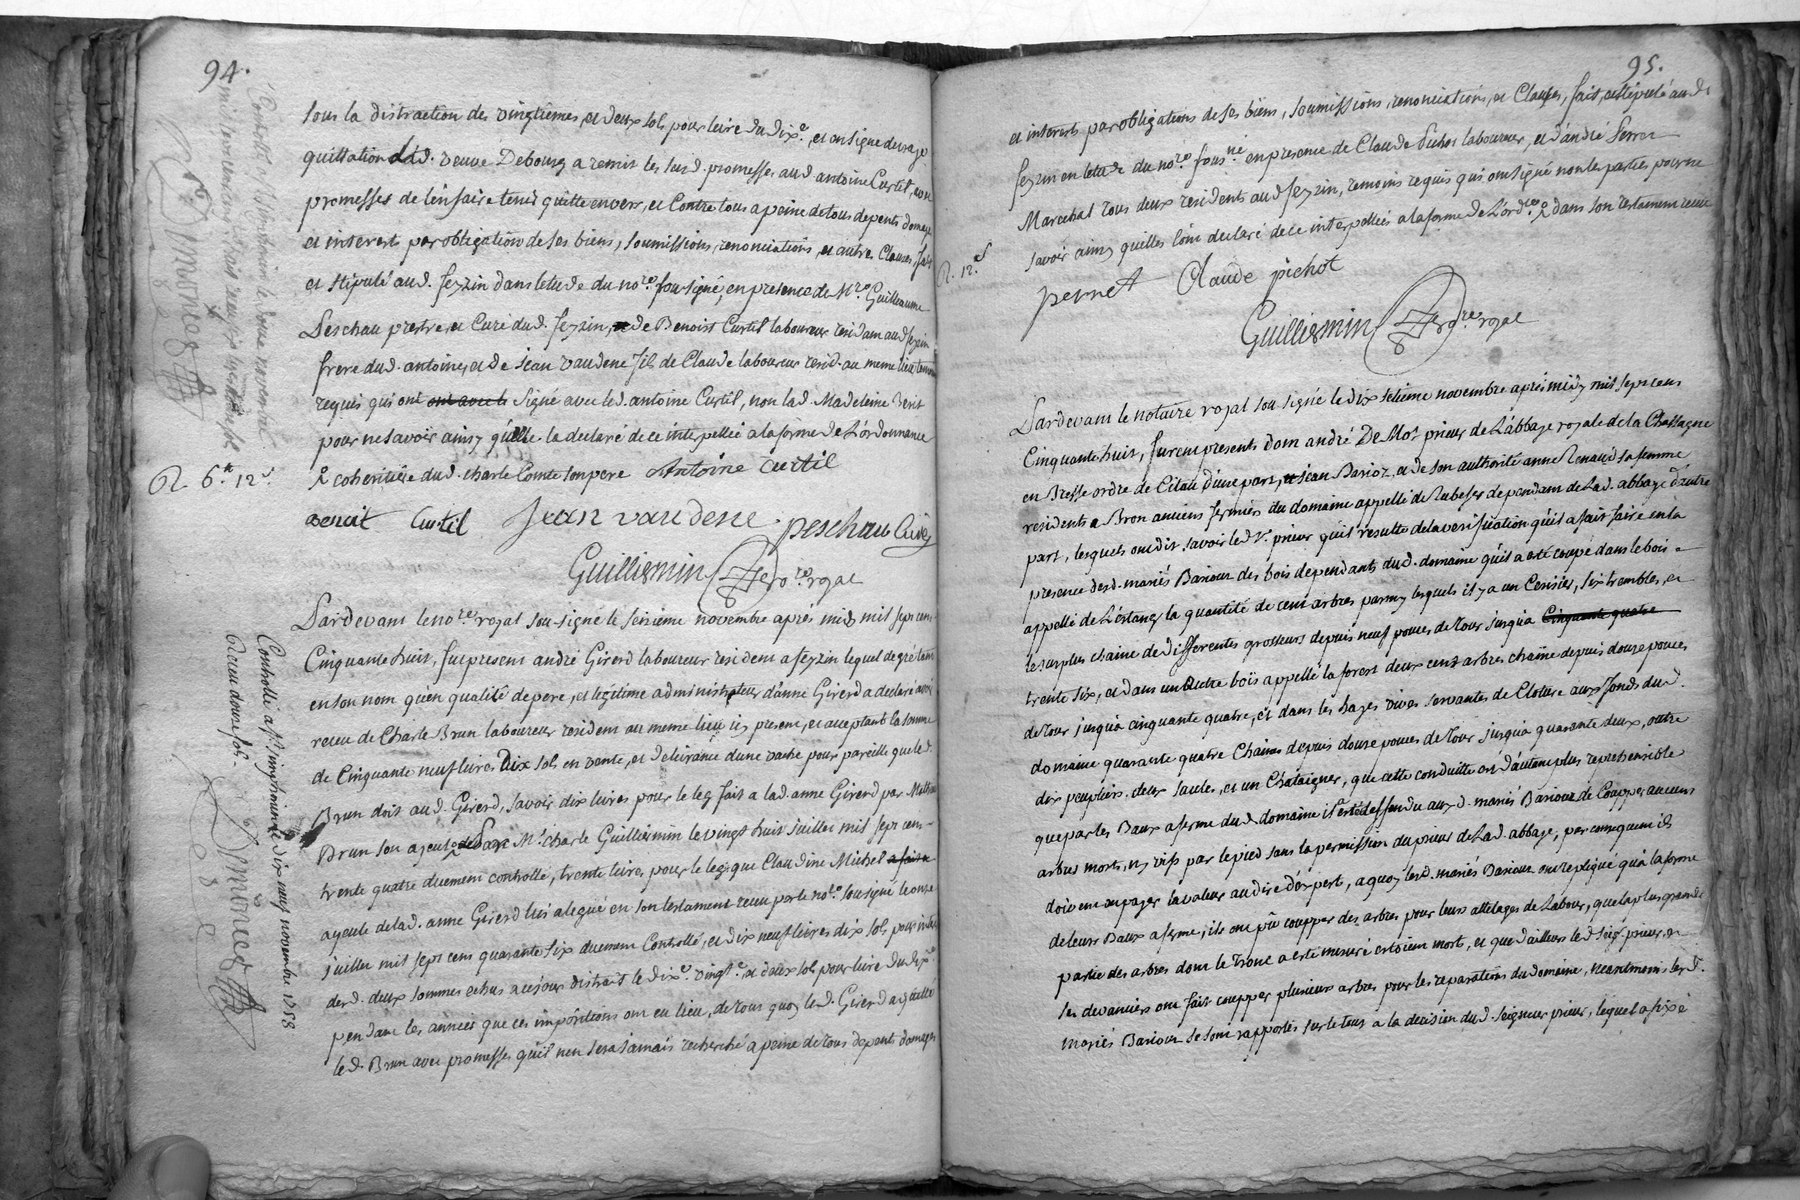 94.
sous la distraction des vingtiemes, et deux sols pour livre du dixe. et au signe de vraye
quittation Lad. veuve Debourg a remis les susd. promesses aud. antoine Curtil, avec
promesses de l'en faire tenir quitte envers, et Contre tous a peine de tous depents domages
et interests par obligation de ses biens, soumissions, renonciations, et autres Clauses, fait
et stipulé aud. feyzin dans letude du nore. sousigné, en presence de Mre. Guilleaume
Peschau prestre, et Curé dud. feyzin, de Benoist Curtil laboureur resident aud feyzin
frere dud. antoine, et de jean vaudene fils de Claude laboureur resid. au meme lieu temoins
requis qui ont ont avec le signé avec led. antoine Curtil, non lad. Madeleine
pour ne savoir ainsy qu'elle la declaré de ce interpellée a la forme de L'ordonnance
coheritiére dud. charle Comte son pere Antoine Curtil
benoit Curtil Jean vaudene peschau Curé
Guilliermin nore. royal
R. 6# 12s.
Pardevant le nore. royal sou-signé le séziéme novembre aprés midy mil sept cent
Cinquante huit, fut present andré Girerd laboureur resident a feyzin lequel de gré tant
en son nom qu'en qualité de pere, et legitime administrateur d'anne Girerd a declaré avoir
receu de Charle Brun laboureur resident au meme lieu icy present, et acceptant la somme
de Cinquante neuf livres Dix sols en vente, et delivrance d'une vache pour pareille que led.
Brun doit aud. Girerd, savoir dix livres pour le leg fait a lad. anne Girerd par
Brun son ayeul Me. charle Guilliermin le vingt huit juillet mil sept cent
trente quatre duement controllé, trente livres pour le leg que Claudine Michel a fait a
ayeule de lad. anne Girerd lui a legué en son testament receu par le nore. sousigné le onze
juillet mil sept cent quarante six duement Controllé, et dix neuf livres dix sols pour interets
desd. deux sommes echus a ce jour distrait le dixe. vingte. et deux sols pour livre du dixe.
pendant les années que ces impositions ont eu lieu, de tous quoy led. Girerd a quitté
led. Brun avec promesses qu'il n'en sera jamais recherché a peine de tous depents domages
Controllé a st. simphorien le dix neuf novembre 1758
Receu douze sols
95.
et interests par obligations de ses biens, soumissions, renonciations, et Clauses, fait, et stipulé aud.
feyzin en letude du nore. sousne. en presence de Claude Pichot laboureur, et d'andré Pernet
Marechal tous deux residents aud feyzin, temoins requis qui ont signé non les parties pour ne
savoir ainsy quelles l'ont declaré de ce interpellées a la forme de L'ordce. dans son testament receu
R. 12.s
pernet Claude pichot
Guilliermin nore. royal
Pardevant le notaire royal sou signé le dix setiéme novembre aprés midy mil sept cent
Cinquante huit, furent presents dom andré De Mos prieur de L'abbaye royale de la Chassagne
en Bresse ordre de Citau d'une part, et jean Barioz, et de son authorité anne Renaud sa femme
residents a Bron anciens fermiers du domaine appellé de Rubeses dependant de Lad. abbaye d'autre
part, lesquels ont dit, savoir led Sr. prieur qu'il résulte de la verification qu'il a fait faire en la
presence desd. mariés Barioux des bois dependants dud. domaine qu'il a eté coupé dans le bois
appellé de L'estang la quantité de cent arbres parmy lesquels il y a un Cerisier, six trembles, et
le surplus chaine de differentes grosseurs depuis neuf pouces de tour jusqu'a Cinquante quatre
trente six, et dans un Autre bois appellé la forest deux cent arbres chaine depuis douze pouces
de tour jusqu'a cinquante quatre, et dans les hayes vives servantes de Cloture aux fonds dud.
domaine quarante quatre Chaines depuis douze pouces de tour jusqu'a quarante deux, outre
dix peupliers, deux saules, et un Chataigner, que cette conduitte est d'autant plus reprehensible
que par les Baux a ferme dud domaine il est deffendu auxd. mariés Barioux de Coupper aucuns
arbres morts, ny vifs par le pied sans la permission du prieur de Lad. abbaye, par consequent ils
doivent en payer la valeur au dire d'expert, a quoy lesd. mariés Barioux ont repliqué qu'a la forme
de leurs Baux a ferme, ils ont pû coupper des arbres pour leurs attelages de Labour, que la plus grande
partie des arbres dont le tronc a eté mesuré estoient mort, et que d'ailleurs led Seigr. prieur, et
ses devanciers ont fait coupper plusieurs arbres pour les reparations du domaine, neantmoins lesd.
mariés Barioux se sont rapportés sur le tout a la decision dud. seigneur prieur, lequel a fixé